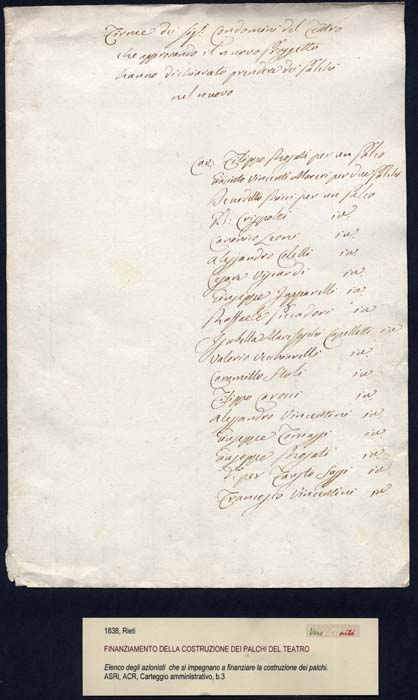 Firme dei Sig.ri Condomini del Teatro
che approvando il nuovo Progetto
hanno dichiarato prendere dei Palchi
nel nuovo
Cav: Filippo per un Palco
Giacinto Vincenti Mareri per due Palchi
Benedetto per un Palco
Crispolti id.
Canonico Leoni id.
Alessandro Coletti id.
id.
Giuseppe id.
Raffaele id.
Isabella Cappelletti id.
Valerio Vecchiarelli id.
Cammillo Stoli id.
Filippo id.
Alessandro Vincentini id.
Giuseppe id.
Giuseppe id.
D. per Fausto id.
Francesco Vincentini id.
1838, Rieti
FINANZIAMENTO DELLA COSTRUZIONE DEI PALCHI DEL TEATRO
Elenco degli azionisti che si impegnano a finanziare la costruzione dei palchi.
ASRi, ACR, Carteggio amministrativo, b.3